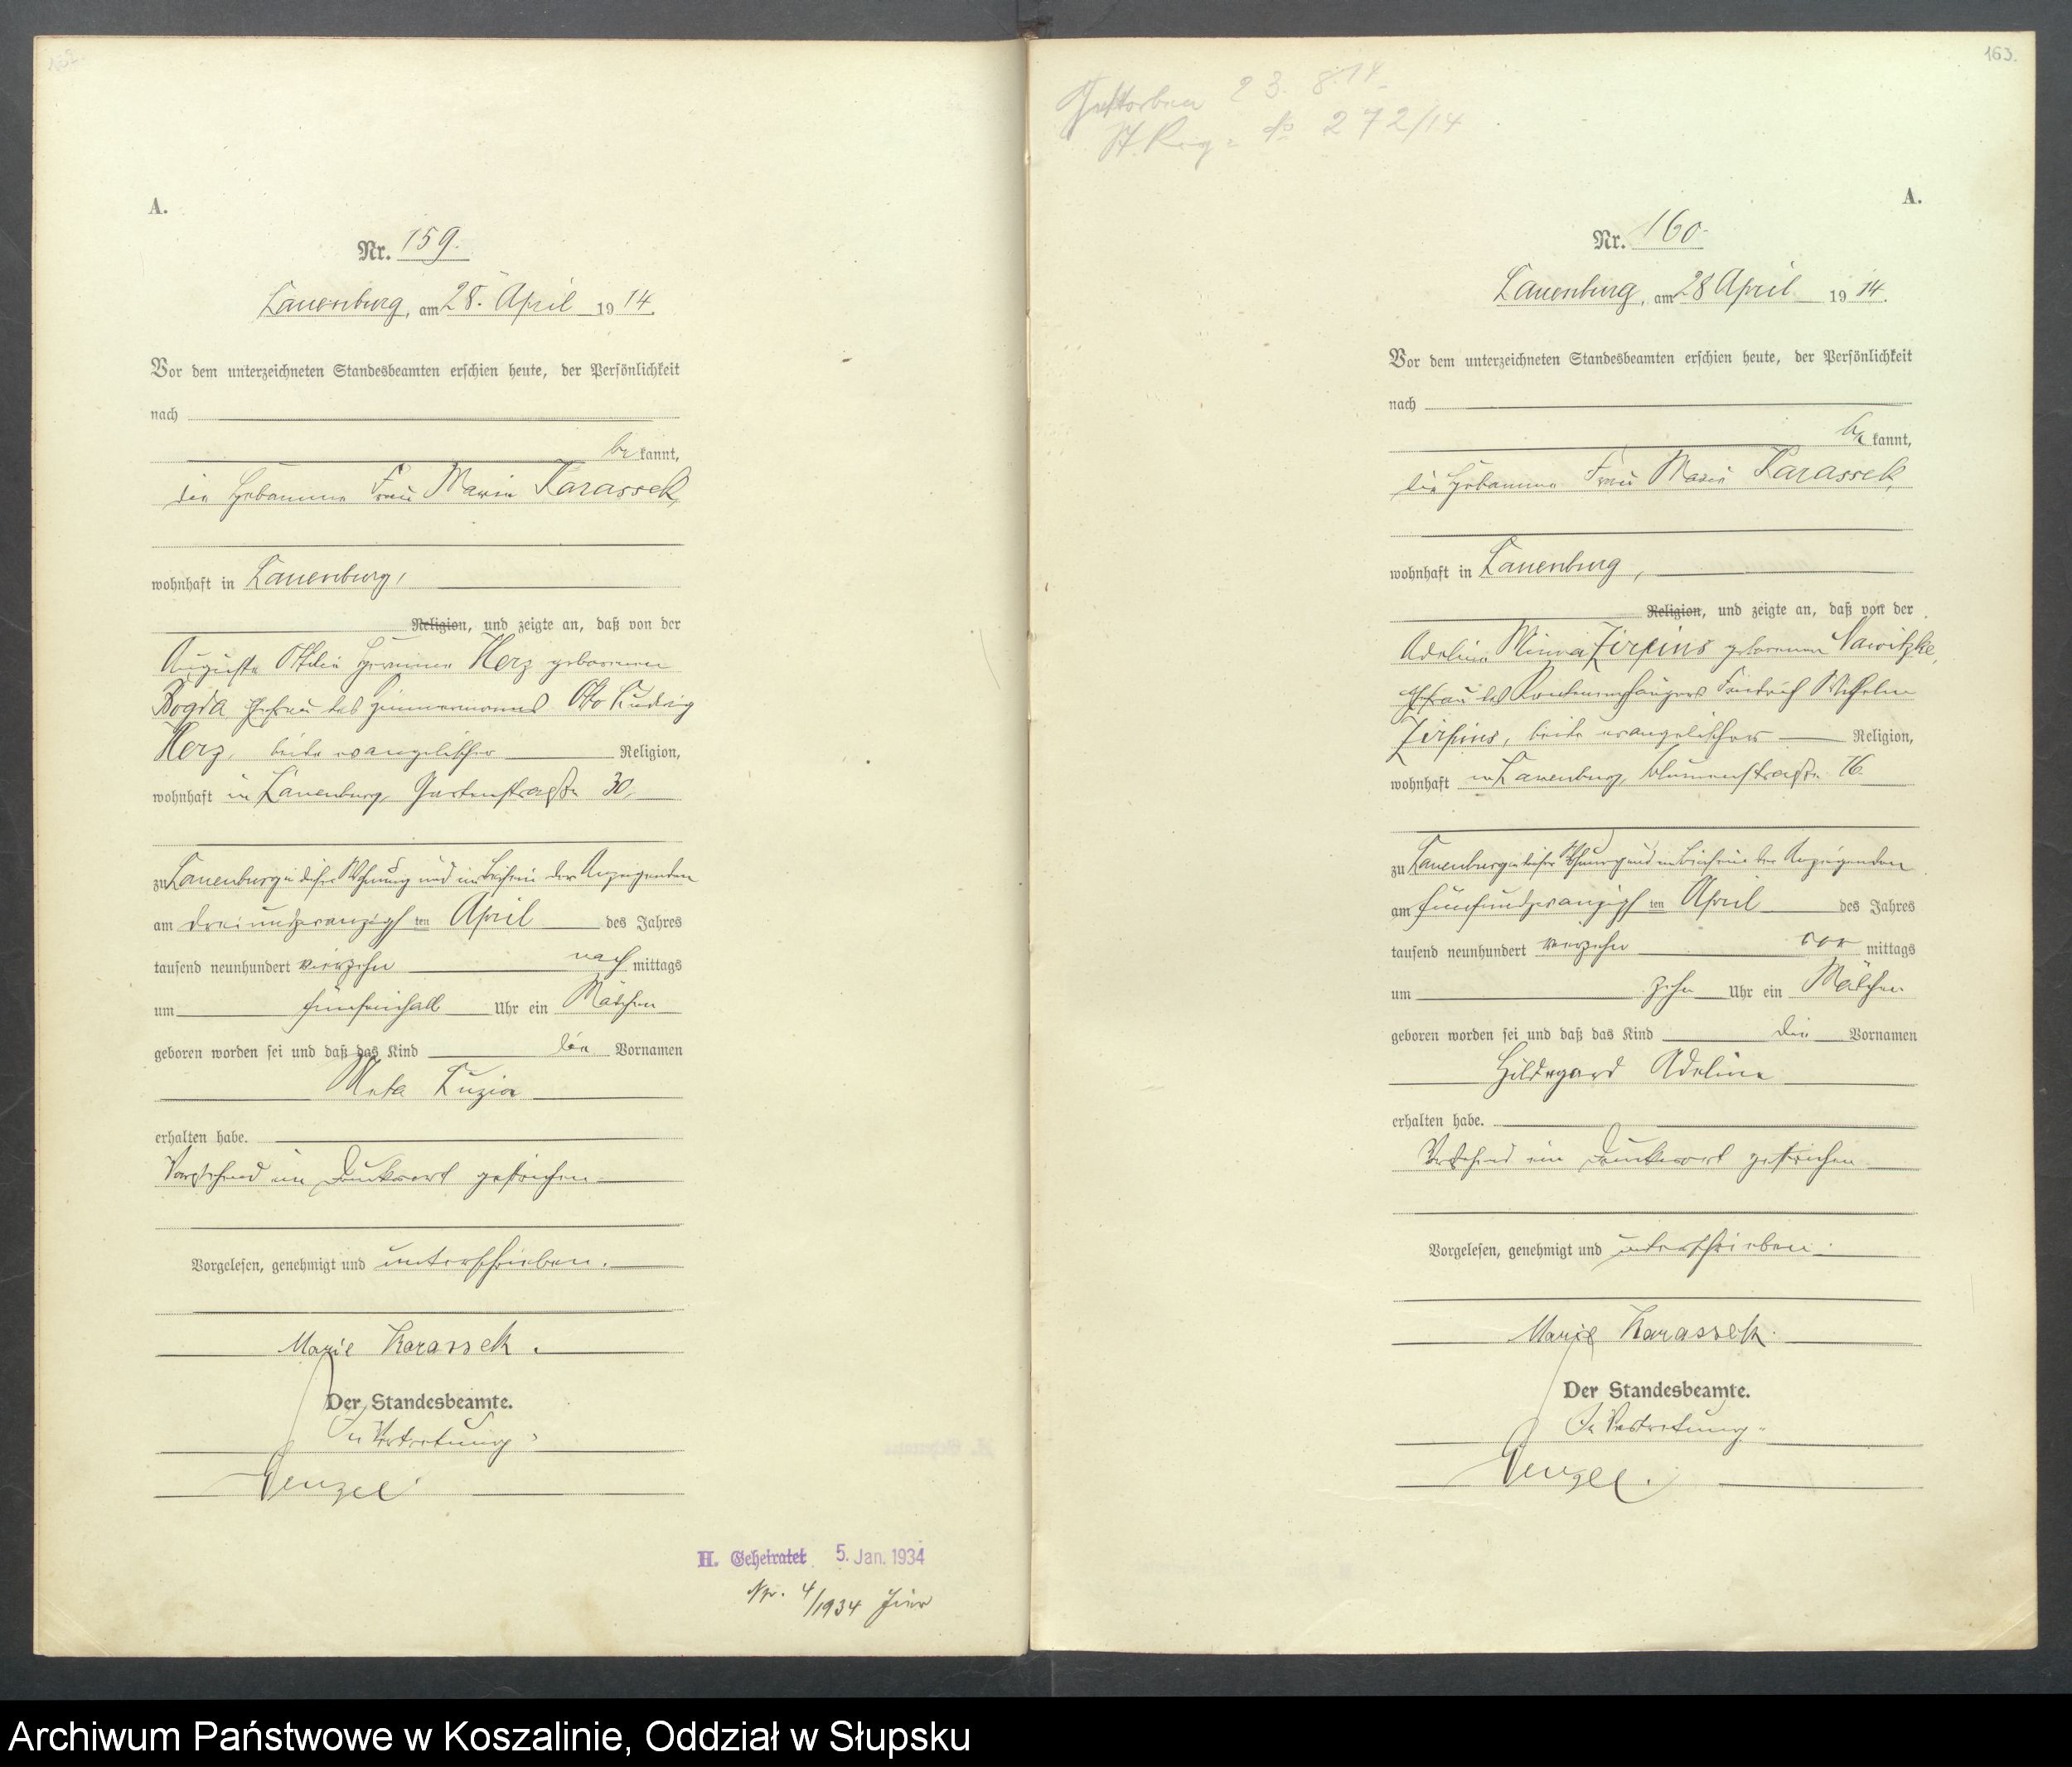 A.
Nr. 159.
Lauenburg, am 28. April 1914.
Vor dem unterzeichneten Standesbeamten erschien heute, der Persönlichkeit
nach
bekannt,
die Hebamme Frau Marie Karassek,
wohnhaft in Lauenburg,
Religion, und zeigte an, daß von der
Auguste Ottilie Hermine Herz geborenen
Bogda Ehefrau des Zimmermanns Otto Ludwig
Herz, beide evangelischer Religion,
wohnhaft in Lauenburg, Gartenstraße 30,
zu Lauenburg in dieser Wohnung und im Beisein der Anzeigenden
am dreiundzwanzigsten April des Jahres
tausend neunhundert vierzehn nachmittags
um fünfeinhalb Uhr ein Mädchen
geboren worden sei und daß das Kind die Vornamen
Meta Luzia
erhalten habe.
Vorstehend ein Druckwort gestrichen.
Vorgelesen, genehmigt und unterschrieben.
Marie Karassek.
Der Standesbeamte.
In Vertretung
Wenzel
H. Geheiratet 5. Jan. 1934
4/1934
163.
Gestorben 23. 8. 14
St. Reg. No 272/14
A.
Nr. 160.
Lauenburg, am 28 April 1914.
Vor dem unterzeichneten Standesbeamten erschien heute, der Persönlichkeit
nach
bekannt,
die Hebamme Frau Marie Karassek,
wohnhaft in Lauenburg,
Religion, und zeigte an, daß von der
Adeline Minna Zirpins geborenen Nawitzke,
Ehefrau des Rentenempfängers Friedrich Wilhelm
Zirpins, beide evangelischer Religion,
wohnhaft in Lauenburg, Blumenstraße 16
zu Lauenburg in dieser Wohnung und im Beisein der Anzeigenden
am fünfundzwanzigsten April des Jahres
tausend neunhundert vierzehn vormittags
um zehn Uhr ein Mädchen
geboren worden sei und daß das Kind die Vornamen
Hildegard Adeline
erhalten habe.
Vorstehend ein Druckwort gestrichen
Vorgelesen, genehmigt und unterschrieben.
Marie Karassek.
Der Standesbeamte.
In Vertretung
Wenzel.
Archiwum Państwowe w Koszalinie, Oddział w Słupsku